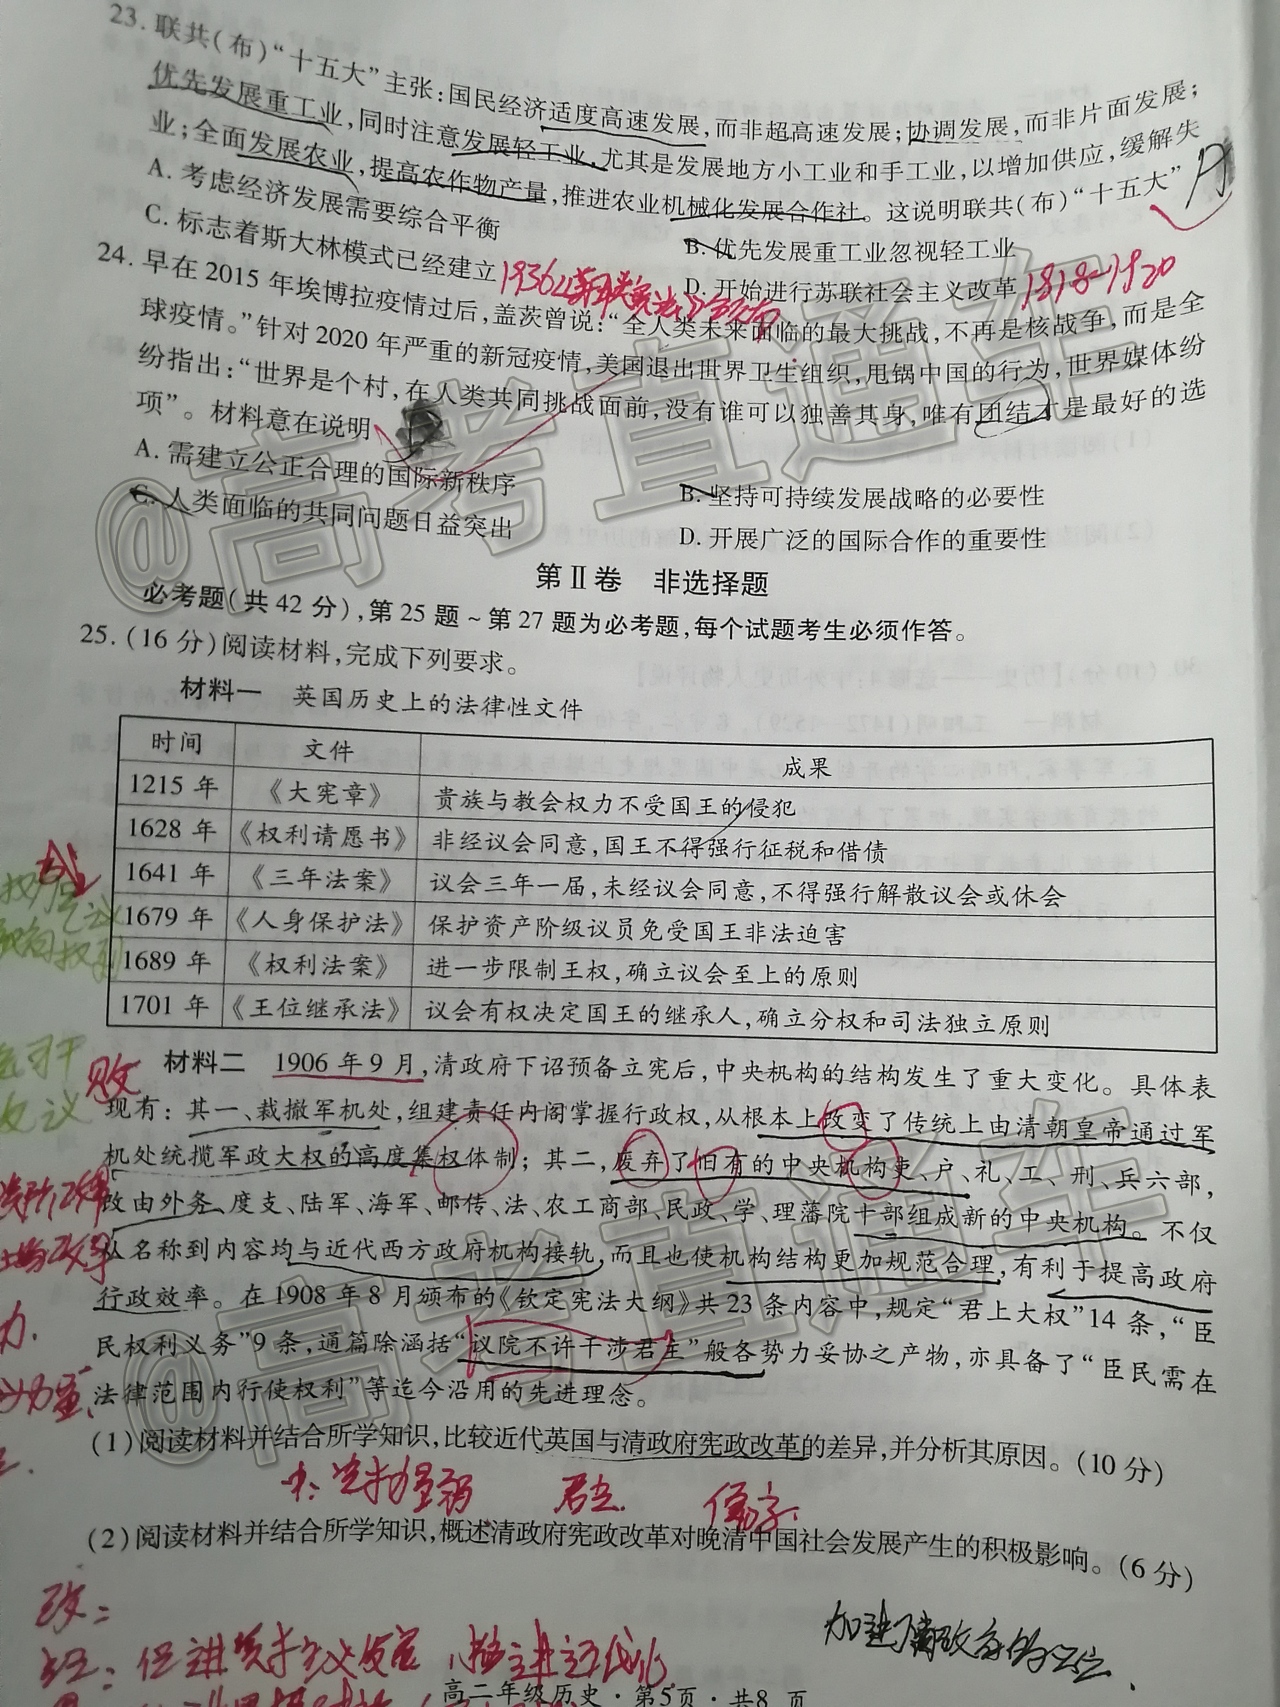 23. 联共(布)“十五大”主张:国民经济适度高速发展,而非超高速发展;协调发展,而非片面发展;
优先发展重工业,同时注意发展轻工业,尤其是发展地方小工业和手工业,以增加供应,缓解失
业;全面发展农业,提高农作物产量,推进农业机械化发展合作社。这说明联共(布)“十五大”
A. 考虑经济发展需要综合平衡
B. 优先发展重工业忽视轻工业
C. 标志着斯大林模式已经建立
D. 开始进行苏联社会主义改革
1918-1920
24. 早在2015年埃博拉疫情过后,盖茨曾说:“全人类未来面临的最大挑战,不再是核战争,而是全
球疫情。”针对2020年严重的新冠疫情,美国退出世界卫生组织,甩锅中国的行为,世界媒体纷
纷指出:“世界是个村,在人类共同挑战面前,没有谁可以独善其身,唯有团结才是最好的选
项”。材料意在说明
A. 需建立公正合理的国际新秩序
B. 坚持可持续发展战略的必要性
C. 人类面临的共同问题日益突出
D. 开展广泛的国际合作的重要性
第Ⅱ卷 非选择题
必考题(共42分),第25题~第27题为必考题,每个试题考生必须作答。
25. (16分)阅读材料,完成下列要求。
材料一 英国历史上的法律性文件
时间 文件 成果
1215年 《大宪章》 贵族与教会权力不受国王的侵犯
1628年 《权利请愿书》 非经议会同意,国王不得强行征税和借债
1641年 《三年法案》 议会三年一届,未经议会同意,不得强行解散议会或休会
1679年 《人身保护法》 保护资产阶级议员免受国王非法迫害
1689年 《权利法案》 进一步限制王权,确立议会至上的原则
1701年 《王位继承法》 议会有权决定国王的继承人,确立分权和司法独立原则
材料二 1906年9月,清政府下诏预备立宪后,中央机构的结构发生了重大变化。具体表
现有:其一、裁撤军机处,组建责任内阁掌握行政权,从根本上改变了传统上由清朝皇帝通过军
机处统揽军政大权的高度集权体制;其二,废弃了旧有的中央机构吏、户、礼、工、刑、兵六部,
改由外务、度支、陆军、海军、邮传、法、农工商部、民政、学、理藩院十部组成新的中央机构。不仅
从名称到内容均与近代西方政府机构接轨,而且也使机构结构更加规范合理,有利于提高政府
行政效率。在1908年8月颁布的《钦定宪法大纲》共23条内容中,规定“君上大权”14条,“臣
民权利义务”9条,通篇除涵括“议院不许干涉君主”般各势力妥协之产物,亦具备了“臣民需在
法律范围内行使权利”等迄今沿用的先进理念。
(1)阅读材料并结合所学知识,比较近代英国与清政府宪政改革的差异,并分析其原因。(10分)
(2)阅读材料并结合所学知识,概述清政府宪政改革对晚清中国社会发展产生的积极影响。(6分)
政:
经:促进资本主义发展,推进近代化
高二年级历史·第5页·共8页
@高考直通车
@高考直通车